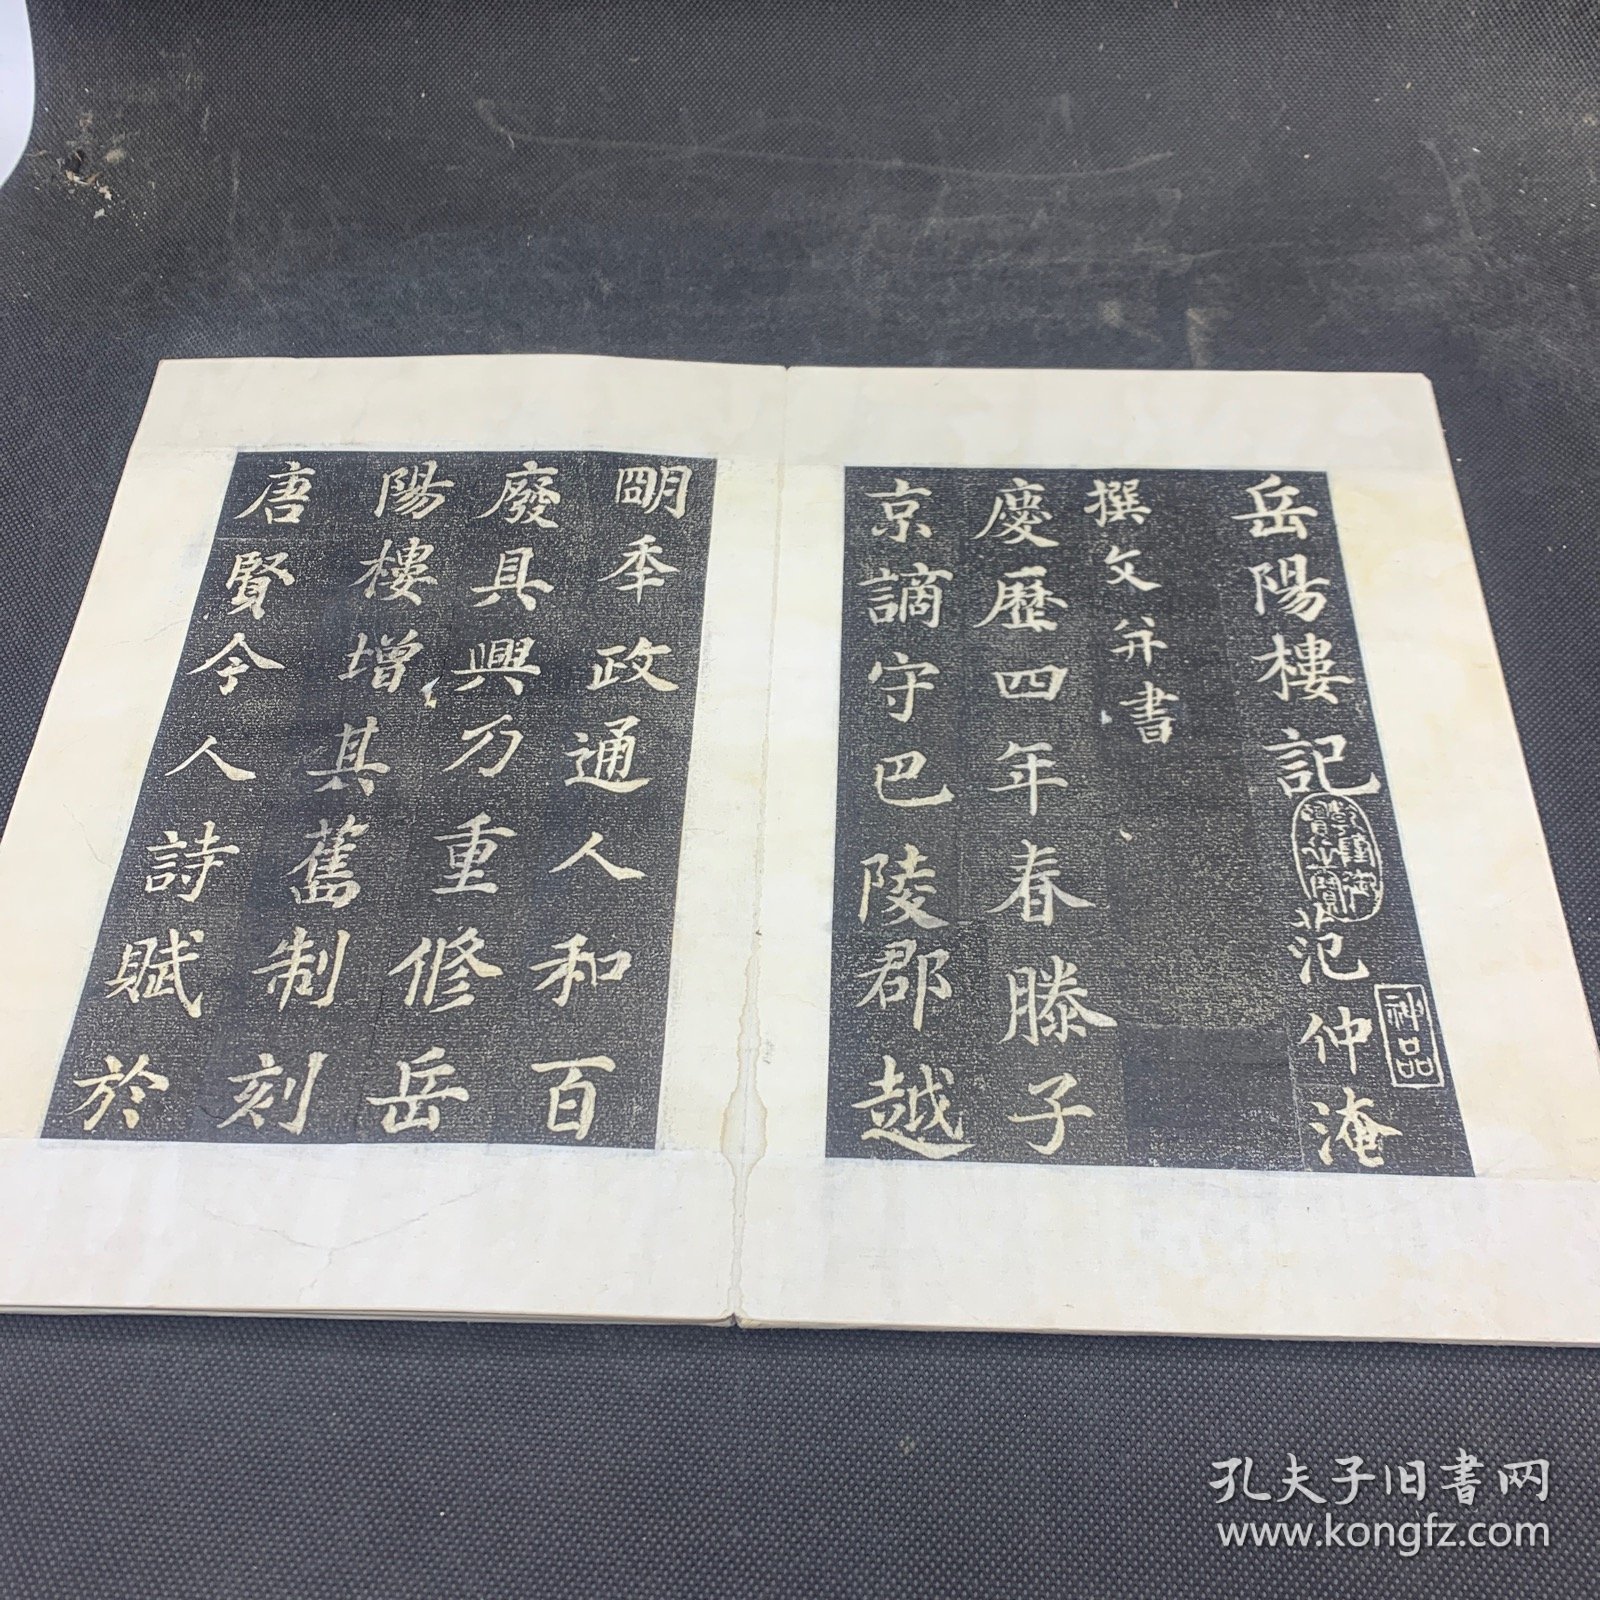 岳陽樓記 范仲淹
神品
撰文并書
慶歷四年春滕子
京謫守巴陵郡越
明年政通人和百
廢具興乃重修岳
陽樓增其舊制刻
唐賢今人詩賦於
孔夫子旧書网
www.kongfz.com